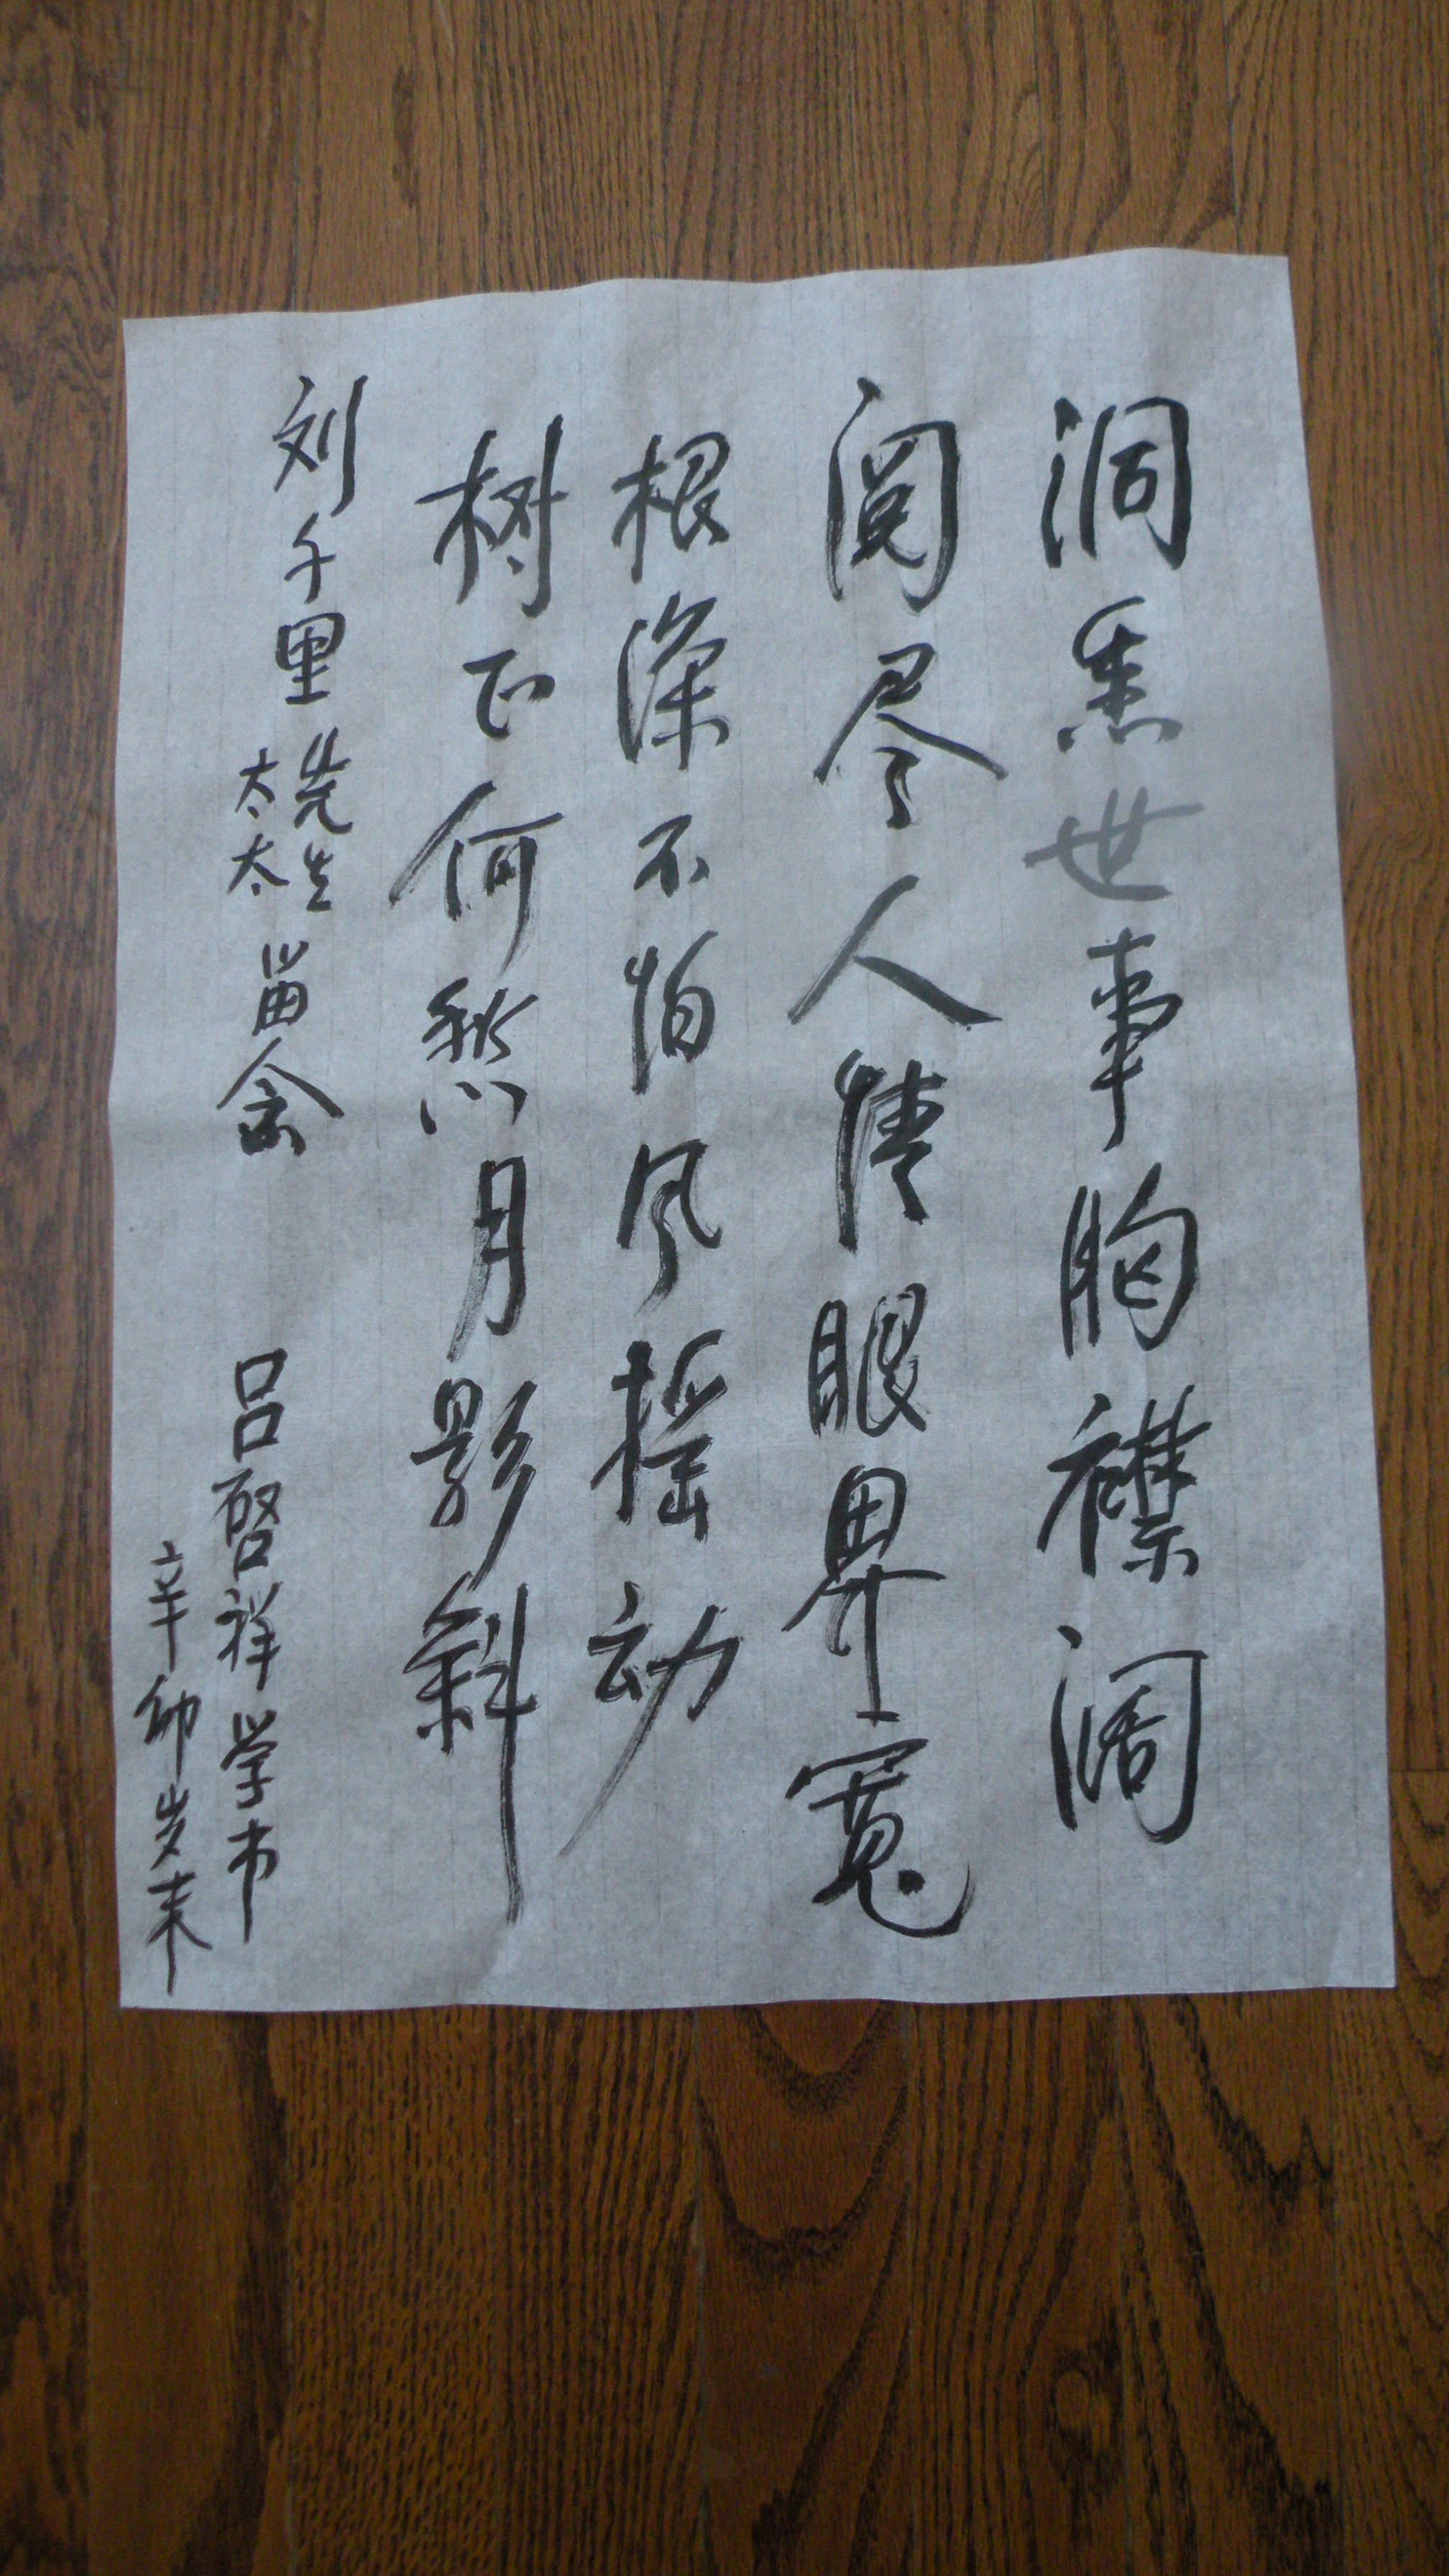 洞悉世事胸襟阔
阅尽人情眼界宽
根深不怕风摇动
树正何愁月影斜
刘千里先生太太留念
吕啓祥学书
辛卯岁末